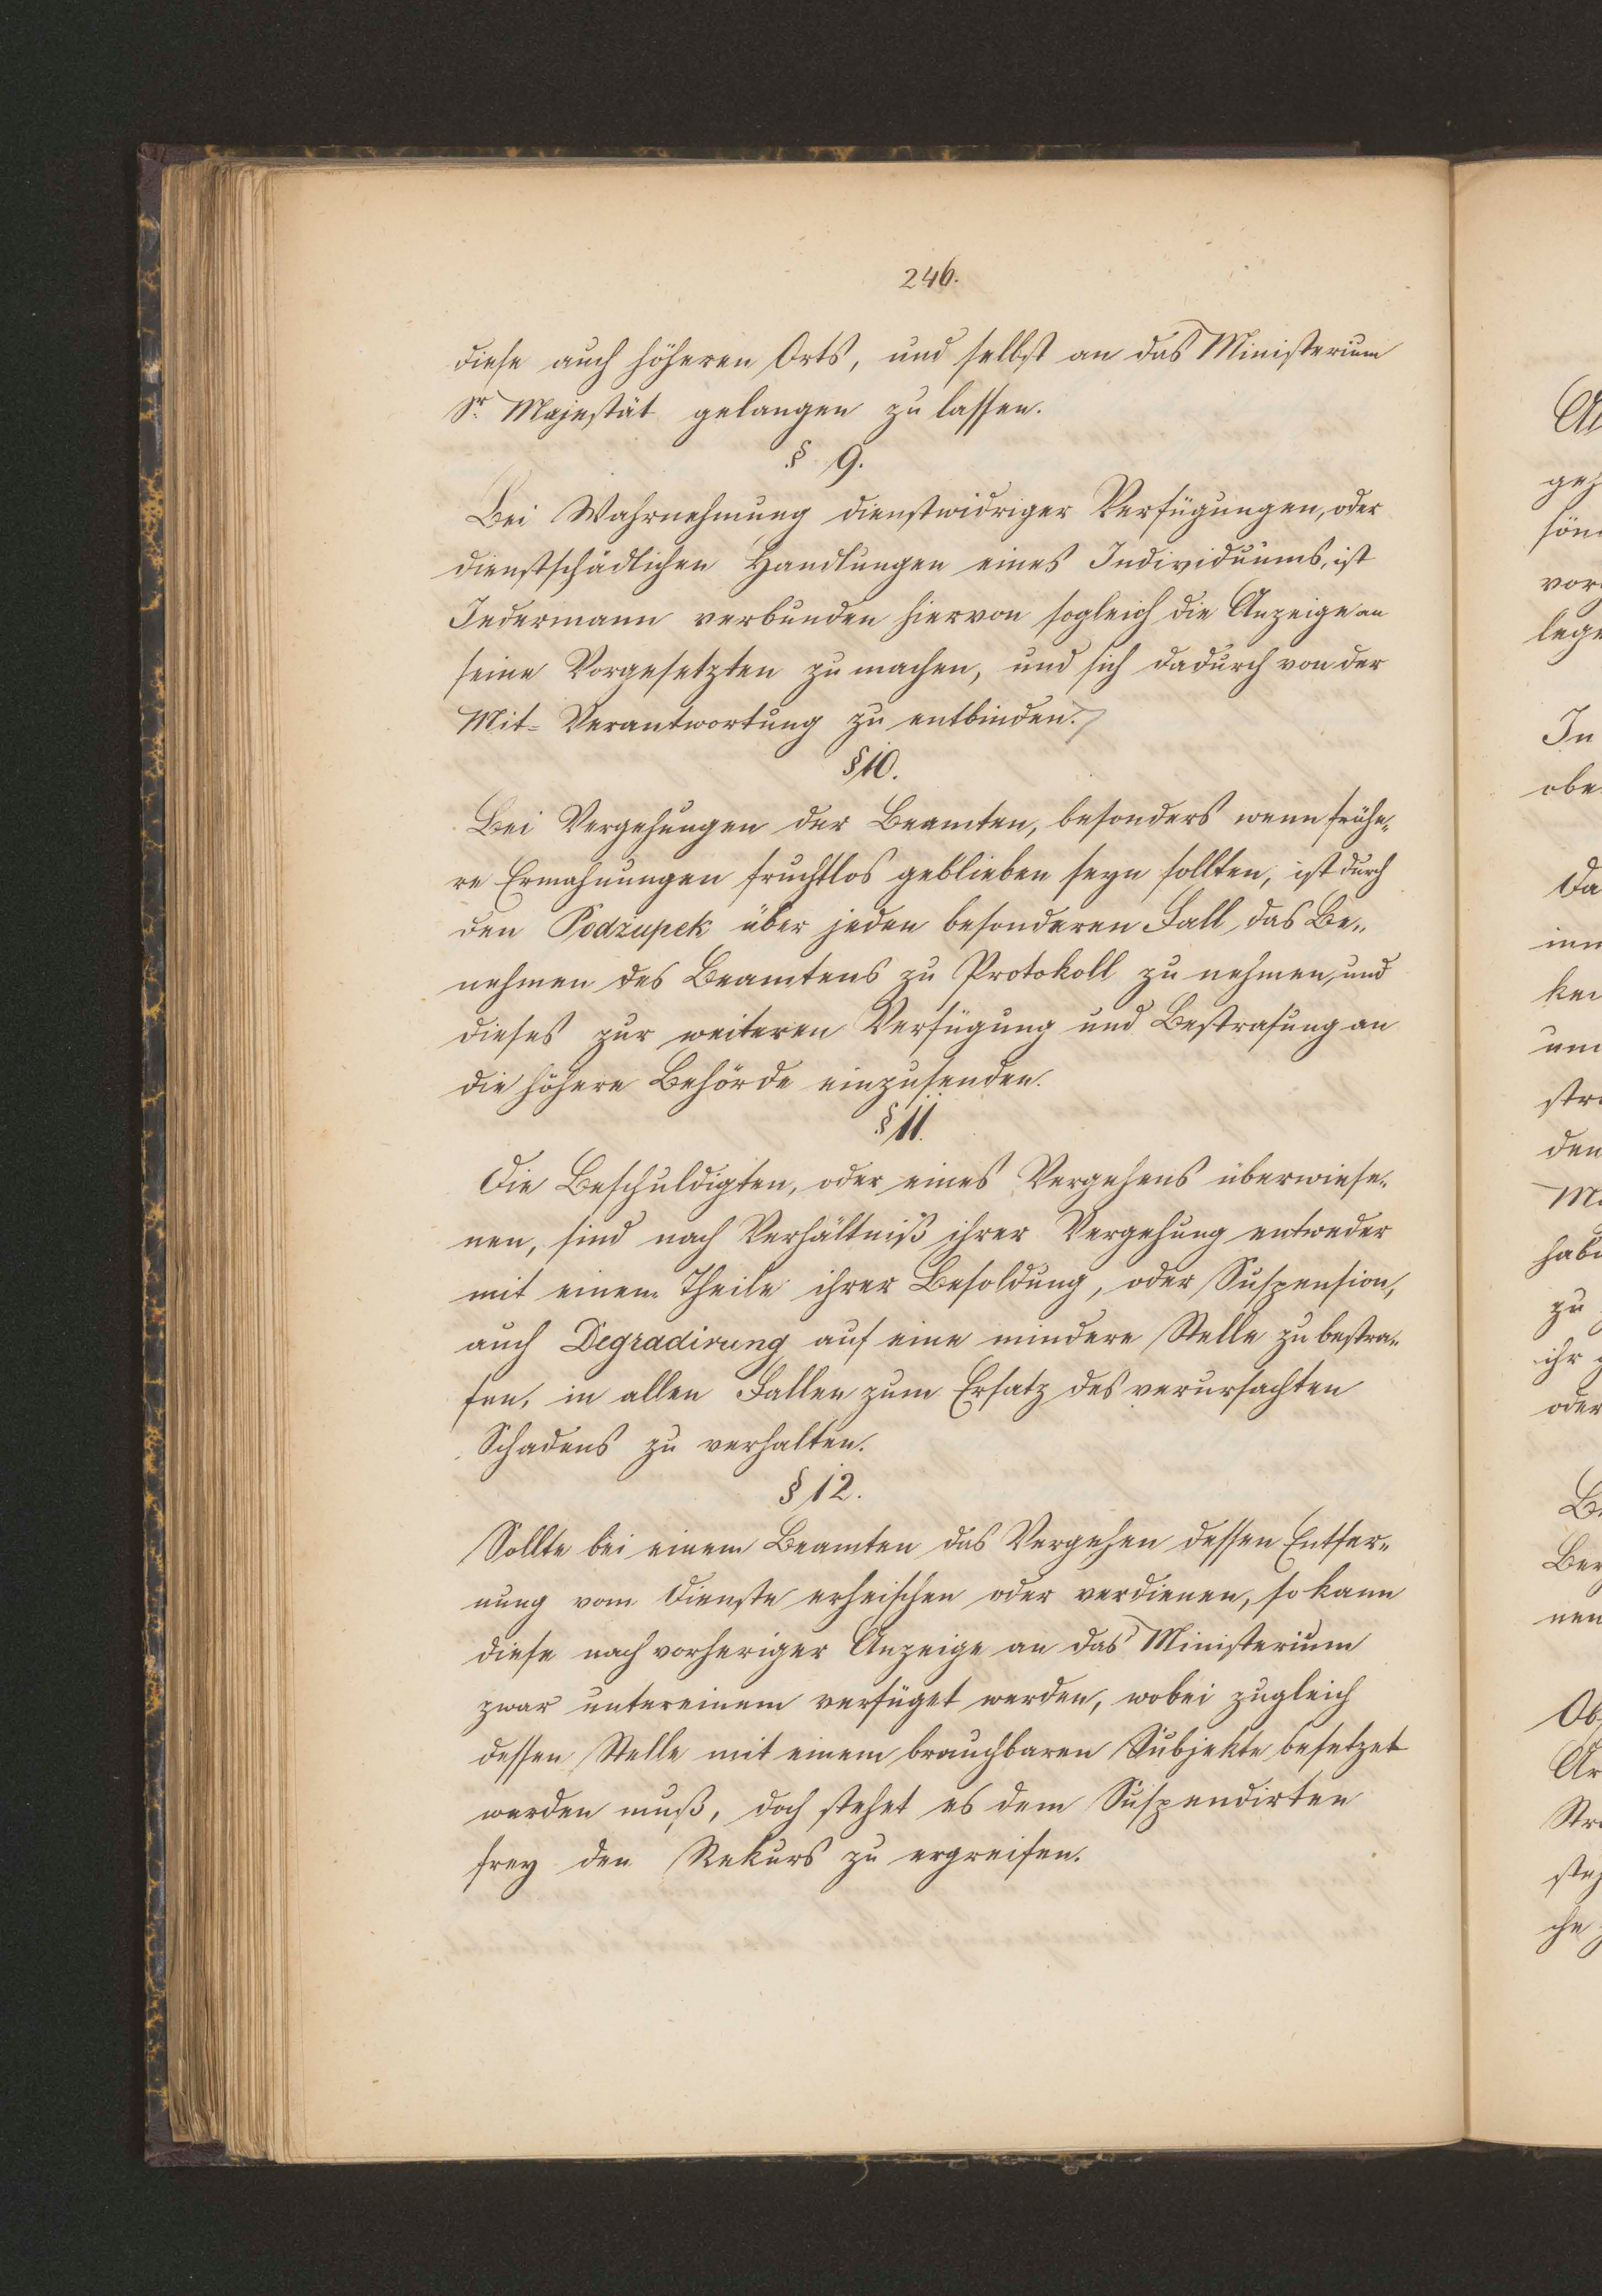 246.
diese auch höheren Orts, und selbst an das Ministerium
Sr. Majestät gelangen zu lassen.
§ 9.
Bei Wahrnehmung dienstwidriger Verfügungen, oder
dienstschädlichen Handlungen eines Individuums, ist
Jedermann verbunden hiervon sogleich die Anzeige an
seine Vorgesetzten zu machen, und sich dadurch von der
Mit-Verantwortung zu entbinden.
§ 10.
Bei Vergehungen der Beamten, besonders wenn frühe-
re Ermahnungen fruchtlos geblieben seyn sollten, ist durch
den Podzupek über jeden besonderen Fall, das Be-
nehmen des Beamtens zu Protokoll zu nehmen, und
dieses zur weiteren Verfügung und Bestrafung an
die höhere Behörde einzusenden.
§ 11.
Die Beschuldigten, oder eines Vergehens überwiese-
nen, sind nach Verhältniß ihrer Vergehung entweder
mit einem Theile ihrer Besoldung, oder Suspension,
auch Degradirung auf eine mindere Stelle zu bestra-
fen, in allen Fallen zum Ersatz des verursachten
Schadens zu verhalten.
§ 12.
Sollte bei einem Beamten das Vergehen dessen Entfer-
nung vom Dienste erheischen oder verdienen, so kann
diese nach vorheriger Anzeige an das Ministerium
zwar untereinem verfüget werden, wobei zugleich
dessen Stelle mit einem brauchbaren Subjekte besetzet
werden muß, doch stehet es dem Suspendirten
frey den Rekurs zu ergreifen.